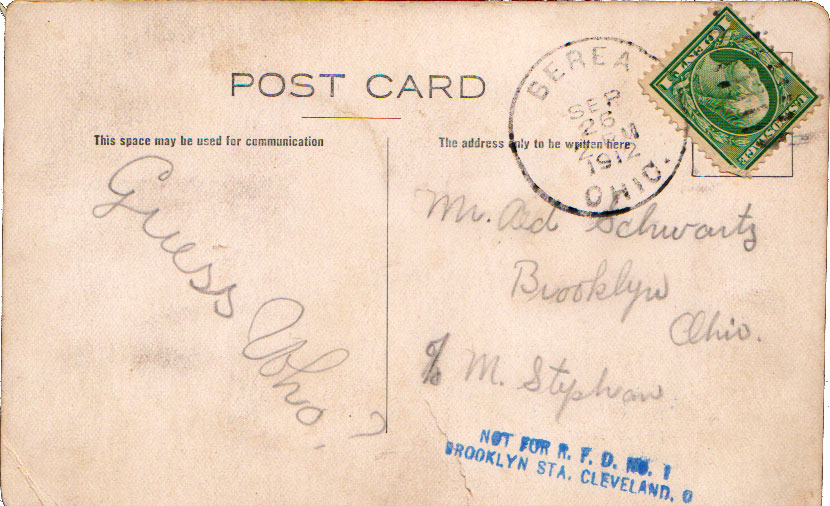 POST CARD
This space may be used for communication
The address only to be written here
BEREA
SEP
26
1912
OHIO.
Guess
Who?
Mr. Ad Schwartz
Brooklyn
Ohio.
c/o M. Stephan
NOT FOR R. F. D. NO. 1
BROOKLYN STA. CLEVELAND, O